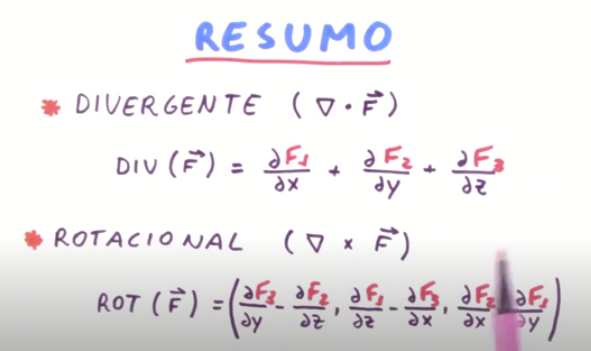 RESUMO
* DIVERGENTE (∇ · F⃗)
DIV (F⃗) = ∂F₁/∂x + ∂F₂/∂y + ∂F₃/∂z
* ROTACIONAL (∇ × F⃗)
ROT (F⃗) = (∂F₃/∂y - ∂F₂/∂z, ∂F₁/∂z - ∂F₃/∂x, ∂F₂/∂x ∂F₁/∂y)